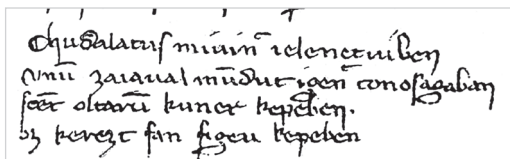 Chudalatus miuinē ielenetuiben
vnuū zaiaual mūdut igenē tonosagaban
scēt oltarū kuner kepeben.
oz kerezt fan figeu kepeben